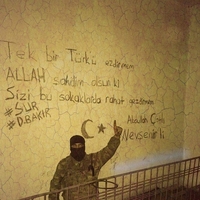 Tek bir Türkü azdırmam
ALLAH şahidim olsun ki
Sizi bu sokaklarda rahat gezdirmem
#SUR
#D.BAKIR
Nevşehirli